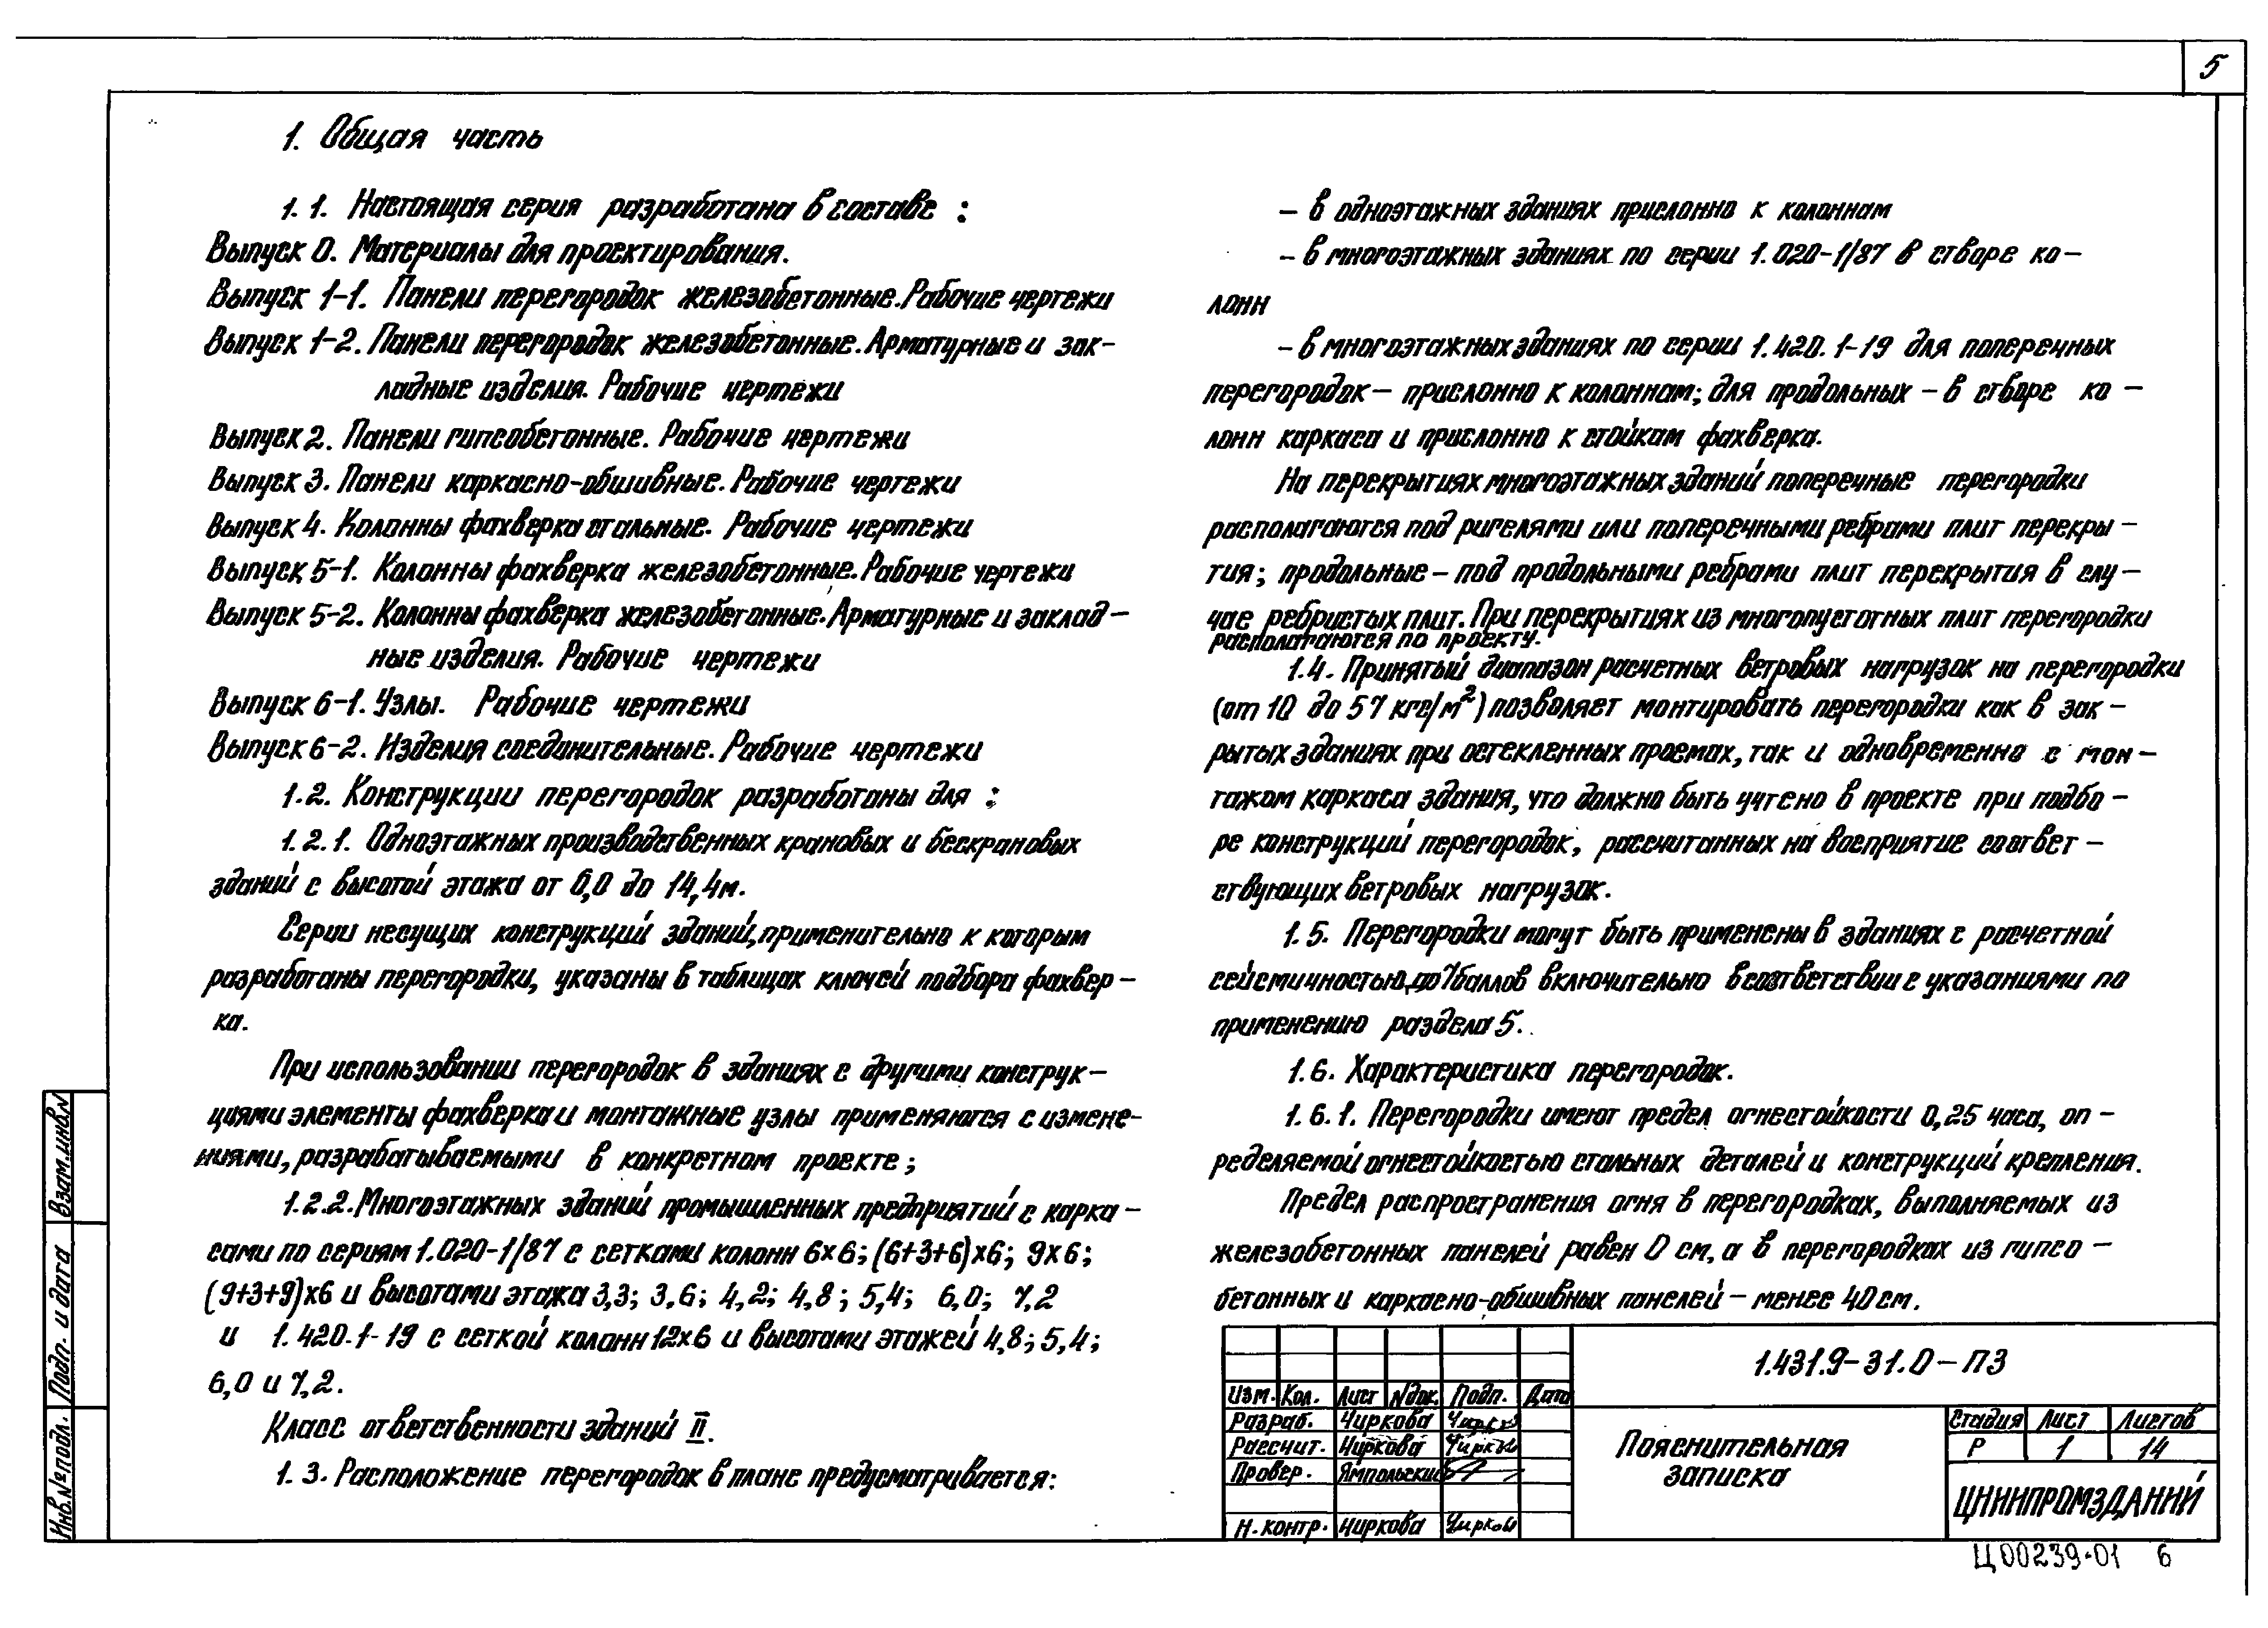 5
1. Общая часть
1.1. Настоящая серия разработана в составе :
Выпуск 0. Материалы для проектирования.
Выпуск 1-1. Панели перегородок железобетонные. Рабочие чертежи
Выпуск 1-2. Панели перегородок железобетонные. Арматурные и зак-
ладные изделия. Рабочие чертежи
Выпуск 2. Панели гипсобетонные. Рабочие чертежи
Выпуск 3. Панели каркасно-обшивные. Рабочие чертежи
Выпуск 4. Колонны фахверка стальные. Рабочие чертежи
Выпуск 5-1. Колонны фахверка железобетонные. Рабочие чертежи
Выпуск 5-2. Колонны фахверка железобетонные. Арматурные и заклад-
ные изделия. Рабочие чертежи
Выпуск 6-1. Узлы. Рабочие чертежи
Выпуск 6-2. Изделия соединительные. Рабочие чертежи
1.2. Конструкции перегородок разработаны для :
1.2.1. Одноэтажных производственных крановых и бескрановых
зданий с высотой этажа от 6,0 до 14,4м.
Серии несущих конструкций зданий, применительно к которым
разработаны перегородки, указаны в таблицах ключей подбора фахвер-
ка.
При использовании перегородок в зданиях с другими конструк-
циями элементы фахверка и монтажные узлы применяются с измене-
ниями, разрабатываемыми в конкретном проекте;
1.2.2. Многоэтажных зданий промышленных предприятий с карка-
сами по сериям 1.020-1/87 с сетками колонн 6х6; (6+3+6)х6; 9х6;
(9+3+9)х6 и высотами этажа 3,3; 3,6; 4,2; 4,8; 5,4; 6,0; 7,2
и 1.420.1-19 с сеткой колонн 12х6 и высотами этажей 4,8; 5,4;
6,0 и 7,2.
Класс ответственности зданий II.
1.3. Расположение перегородок в плане предусматривается:
- в одноэтажных зданиях прислонно к колоннам
- в многоэтажных зданиях по серии 1.020-1/87 в створе ко-
лонн
- в многоэтажных зданиях по серии 1.420.1-19 для поперечных
перегородок - прислонно к колоннам; для продольных - в створе ко-
лонн каркаса и прислонно к стойкам фахверка.
На перекрытиях многоэтажных зданий поперечные перегородки
располагаются под ригелями или поперечными ребрами плит перекры-
тия; продольные - под продольными ребрами плит перекрытия в слу-
чае ребристых плит. При перекрытиях из многопустотных плит перегородки
располагаются по проекту.
1.4. Принятый диапазон расчетных ветровых нагрузок на перегородки
(от 10 до 57 кгс/м²) позволяет монтировать перегородки как в зак-
рытых зданиях при остекленных проемах, так и одновременно с мон-
тажом каркаса здания, что должно быть учтено в проекте при подбо-
ре конструкций перегородок, рассчитанных на восприятие соответ-
ствующих ветровых нагрузок.
1.5. Перегородки могут быть применены в зданиях с расчетной
сейсмичностью до 7 баллов включительно в соответствии с указаниями по
применению раздела 5.
1.6. Характеристика перегородок.
1.6.1. Перегородки имеют предел огнестойкости 0,25 часа, оп-
ределяемой огнестойкостью стальных деталей и конструкций крепления.
Предел распространения огня в перегородках, выполняемых из
железобетонных панелей равен 0 см, а в перегородках из гипсо-
бетонных и каркасно-обшивных панелей - менее 40 см.
1.431.9-31.0-ПЗ
Изм. Кол. Лист №док. Подп. Дата
Разраб. Чиркова Чиркова
Рассчит. Чиркова Чиркова
Провер. Ямпольский
Н.контр. Чиркова Чиркова
Пояснительная
записка
Стадия Лист Листов
Р 1 14
ЦНИИПРОМЗДАНИЙ
Ц00239-01 6
Взам.инв.№
Подп. и дата
Инв.№ подл.